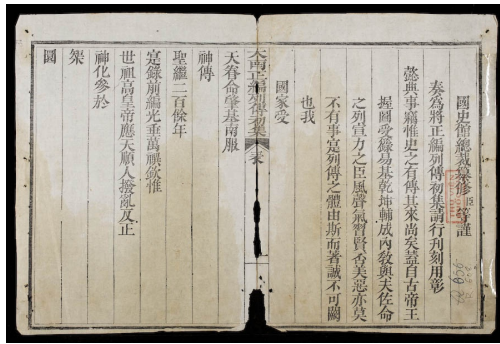 國史館總裁纂修臣等謹
奏為將正編列傳初集請行刊刻用彰
懿典事竊惟史之有傳其來尚矣蓋自古帝王
握圖受籙易基乾坤輔成內教與夫佐命
之列宣力之臣風聲氣習賢否美惡亦莫
不有事寔列傳之體由斯而著誠不可闕
也我
國家受
大南正編列傳初集 表
天眷命肇基南服
神傳
聖繼二百餘年
寔錄前編光垂萬禩欽惟
世祖高皇帝應天順人撥亂反正
神化參於
槊
圓